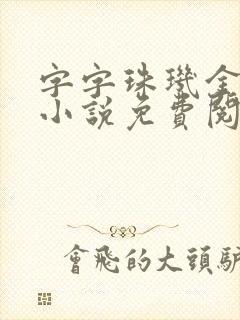 字字珠璣全
小說免費閱
會飛的大頭驢